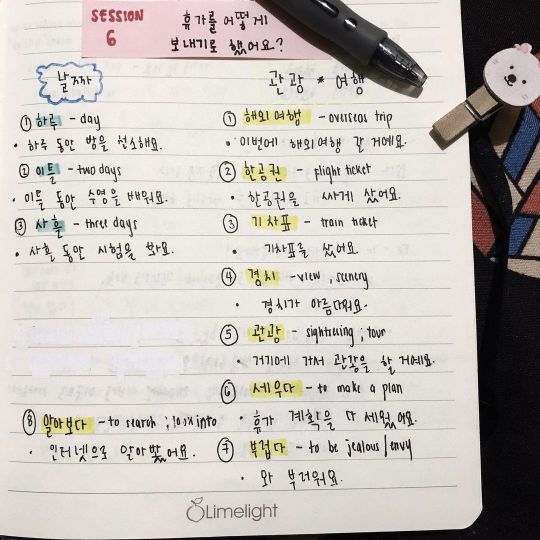 SESSION 6
휴가를 어떻게
보내기로 했어요?
날짜
① 하루 - day
• 하루 동안 방을 청소해요.
② 이틀 - two days
• 이틀 동안 수영을 배워요.
③ 사흘 - three days
• 사흘 동안 시험을 봐요.
관광 * 여행
① 해외여행 - overseas trip
• 이번에 해외여행 갈 거예요.
② 항공권 - flight ticket
• 항공권을 싸게 샀어요.
③ 기차표 - train ticket
• 기차표를 샀어요.
④ 경치 - view, scenery
• 경치가 아름다워요.
⑤ 관광 - sightseeing ; tour
• 거기에 가서 관광을 할 거예요.
⑥ 세우다 - to make a plan
• 휴가 계획을 다 세웠어요.
⑦ 부럽다 - to be jealous/envy
• 와 부러워요.
⑧ 알아보다 - to search ; look into
• 인터넷으로 알아봤어요.
Limelight